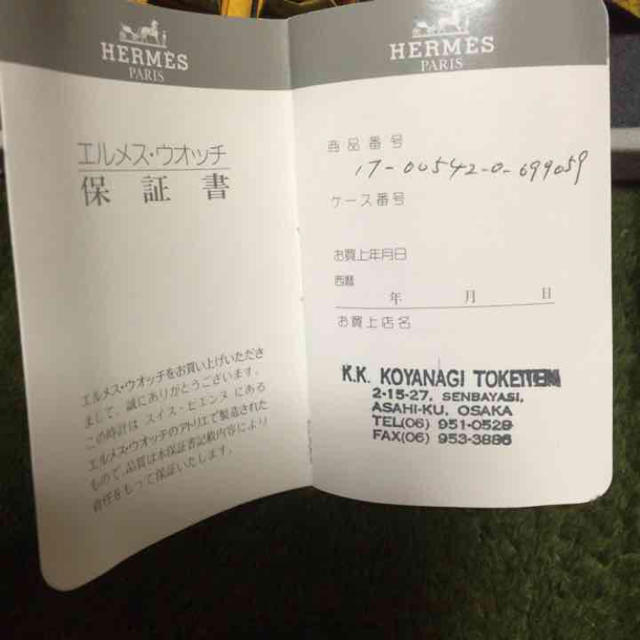 HERMÈS
PARIS
エルメス・ウオッチ
保証書
エルメス・ウオッチをお買い上げいただき
まして、誠にありがとうございます。
この時計は スイス・ビエンヌ にある
エルメス・ウオッチのアトリエで製造された
もので 品質は本保証書記載内容により
責任をもって保証いたします。
HERMÈS
PARIS
商品番号
17-00542-0-699059
ケース番号
お買上年月日
西暦
年 月 日
お買上店名
K.K. KOYANAGI TOKEITEN
2-15-27, SENBAYASI,
ASAHI-KU, OSAKA
TEL(06) 951-0529
FAX(06) 953-3886